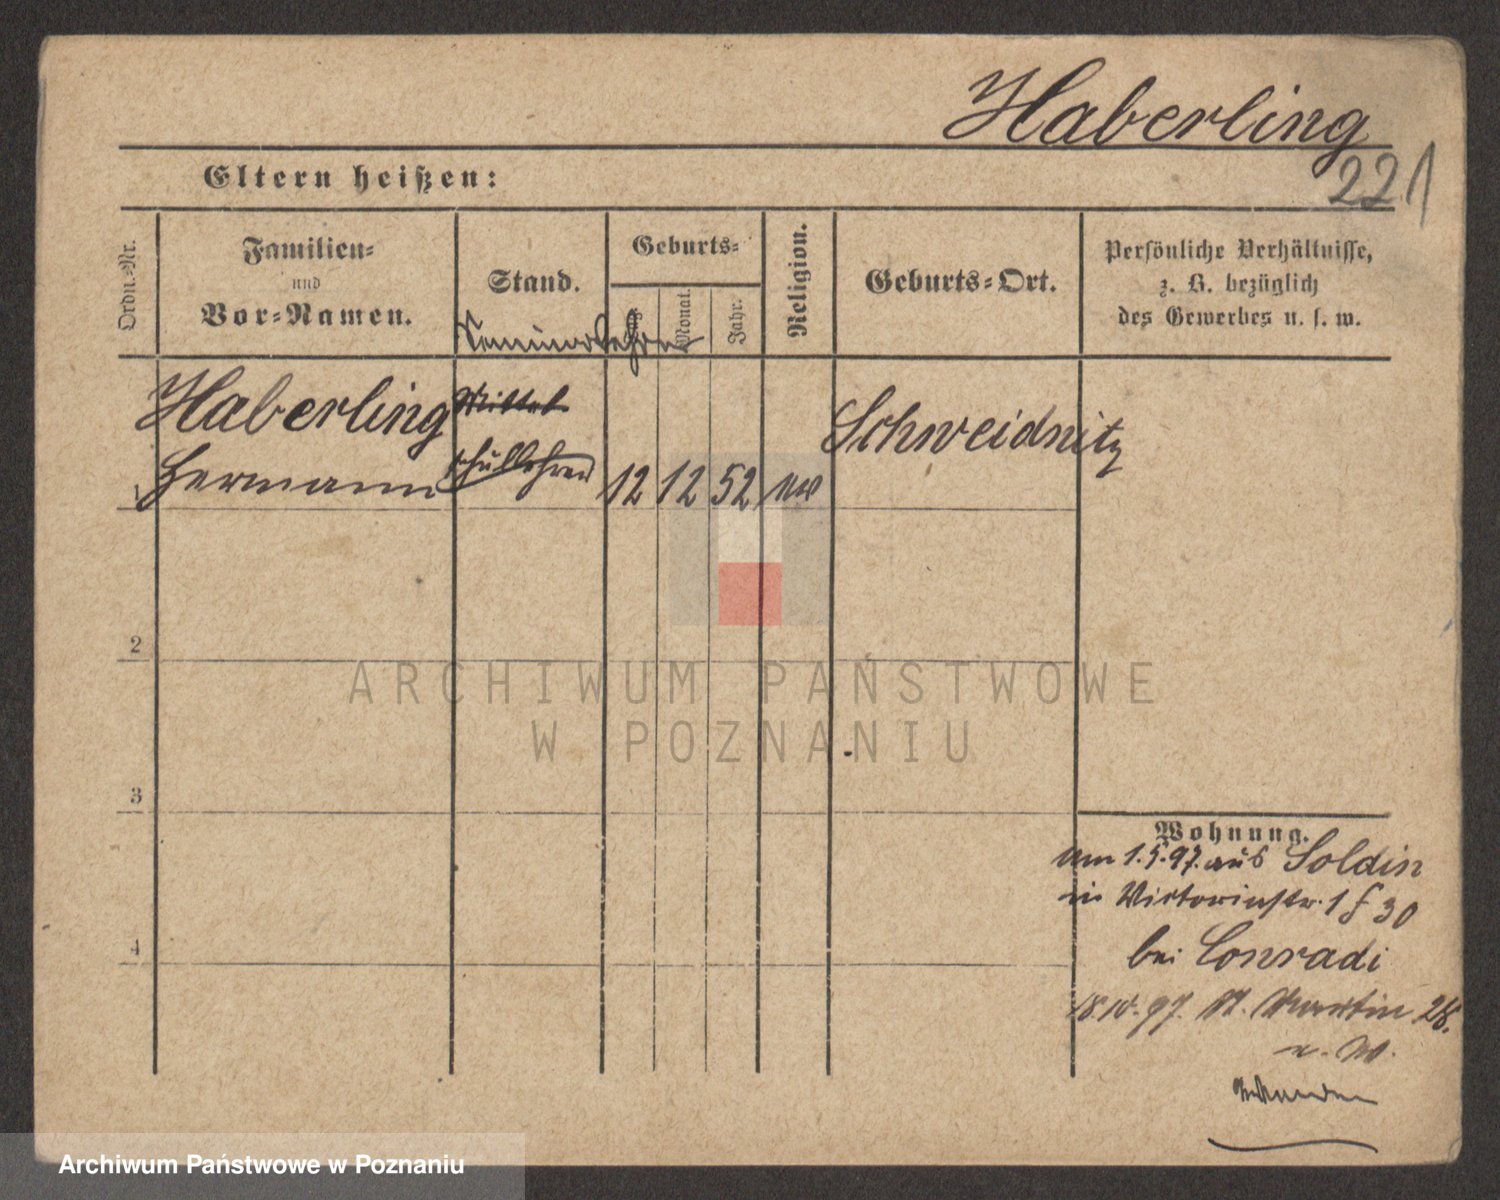 Haberling
221
Eltern heißen:
Ordn.-Nr.
Familien-
und
Vor-Namen.
Stand.
Geburts-
Tag.
Monat.
Jahr.
Religion.
Geburts-Ort.
Persönliche Verhältnisse,
z. B. bezüglich
des Gewerbes u. s. w.
Seminarlehrer
Haberling
Hermann
Mittel
schullehrer
1
12
12
52
Schweidnitz
2
3
4
Wohnung.
am 1.5.97. aus Soldin
in Victoriastr. 1
30
bei Conradi
18.10.97. St. Martin 28.
ARCHIWUM PAŃSTWOWE
W POZNANIU
Archiwum Państwowe w Poznaniu